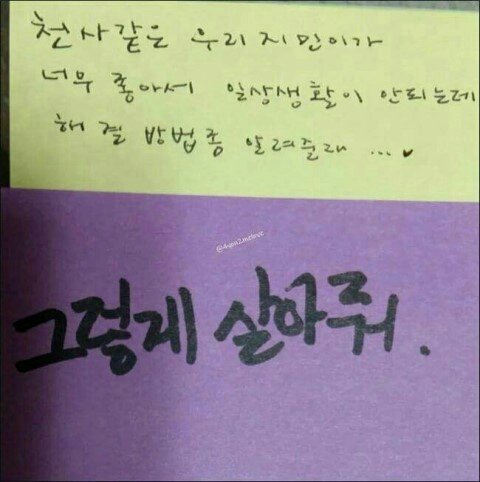 천사같은 우리지민이가
너무 좋아서 일상생활이 안되는데
해결 방법좀 알려줄래 ... ♥
@4you2melove
그렇게 살아줘.